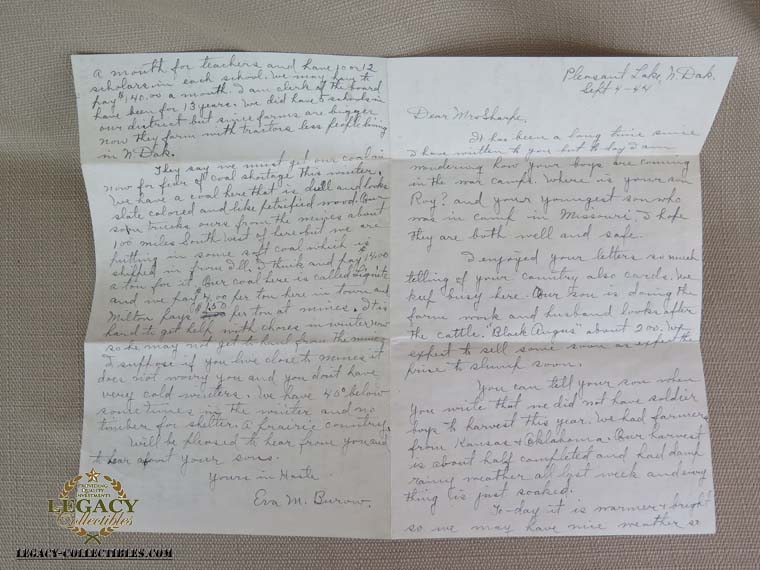 Pleasant Lake, N Dak.
Sept 4 - 44
Dear Mrs Sharpe,
It has been a long time since
I have written to you but to day I am
wondering how your boys are coming
in the war camps. Where is your son
Roy? and your youngest son who
was in camp in Missouri. I hope
they are both well and safe.
I enjoyed your letters so much
telling of your country also cards. We
keep busy here. Our son is doing the
farm work and husband looks after
the cattle. "Black Angus" about 200. We
expect to sell some soon as expect the
price to slump soon.
You can tell your son when
you write that we did not have soldier
boys to harvest this year. We had farmers
from Kansas & Oklahoma. Our harvest
is about half completed and had damp
rainy weather all last week and every
thing is just soaked.
To-day it is warmer & bright
so we may have nice weather so
a month for teachers and have 10 or 12
scholars in each school. We may have to
pay $140.00 a month. I am clerk of the board
have been for 13 years. We did have 5 schools in
our district but since farms are bigger
now they farm with tractors less people living
in N Dak.
They say we must get our coal in
now for fear of coal shortage this winter.
We have a coal here that is dull and looks
slate colored and like petrified wood. Our
son trucks ours from the mines about
100 miles South West of here but we are
putting in some soft coal which is
shipped in from Ill. I think and pay 14.00
a ton for it. Our coal here is called Lignite
and we pay $4.00 per ton here in town and
Milton pays per ton at mines. It is
hard to get help with chores in winter now
so he may not get to haul from the mines
I suppose if you live close to mines it
does not worry you and you don't have
very cold winters. We have 40° below
sometimes in the winter and no
timber for shelter. A prairie country.
Will be pleased to hear from you and
to hear about your sons.
Yours in Haste
Eva M. Burow.
PROVIDING QUALITY INVESTMENTS
LEGACY
Collectibles
LEGACY-COLLECTIBLES.COM